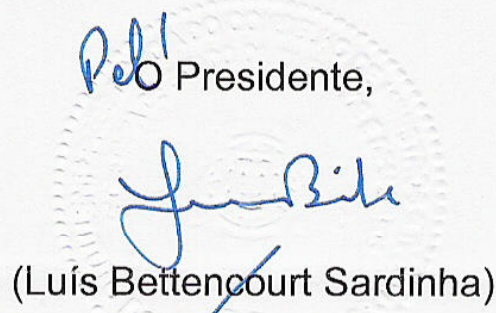 Pel' O Presidente,
(Luís Bettencourt Sardinha)